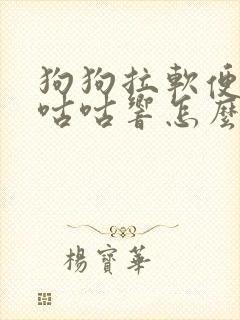 狗狗拉軟便
咕咕響怎麼
楊寶華